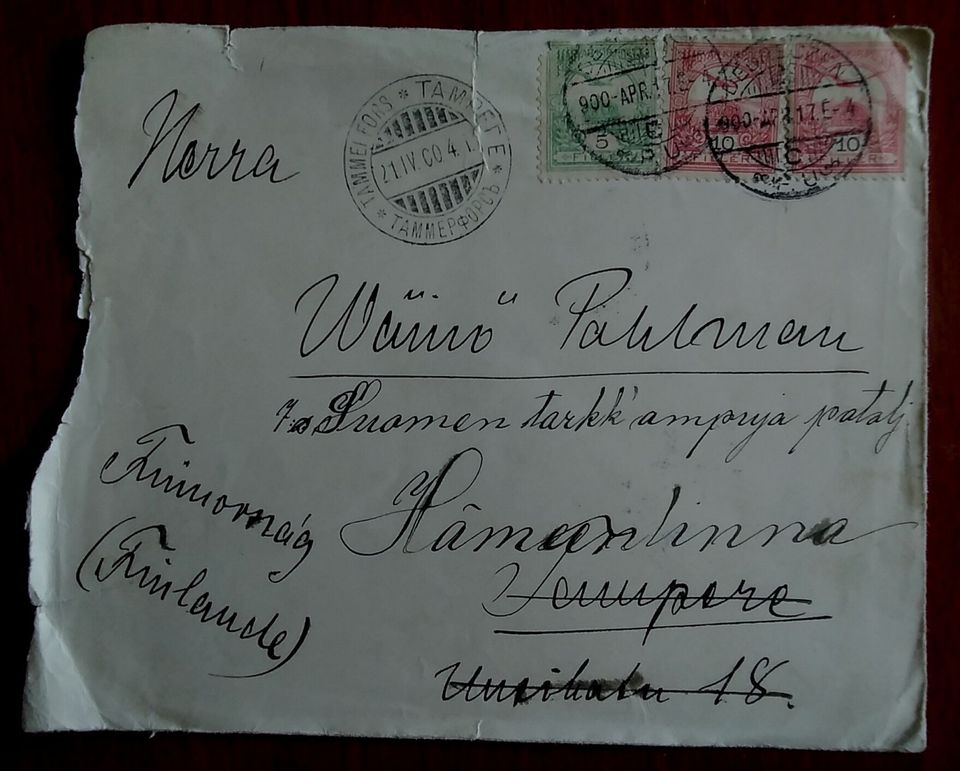 Herra
TAMMERFORS * TAMPERE * ТАММЕРФОРСЪ *
21.IV.00
900-APR.17.E
900-APR.17.E-4
5
10
10
Wäinö Pahlman
7s Suomen tarkk'ampuja patalj.
Hämeenlinna
Tampere
Uusikatu 18.
Finnország
(Finlande)